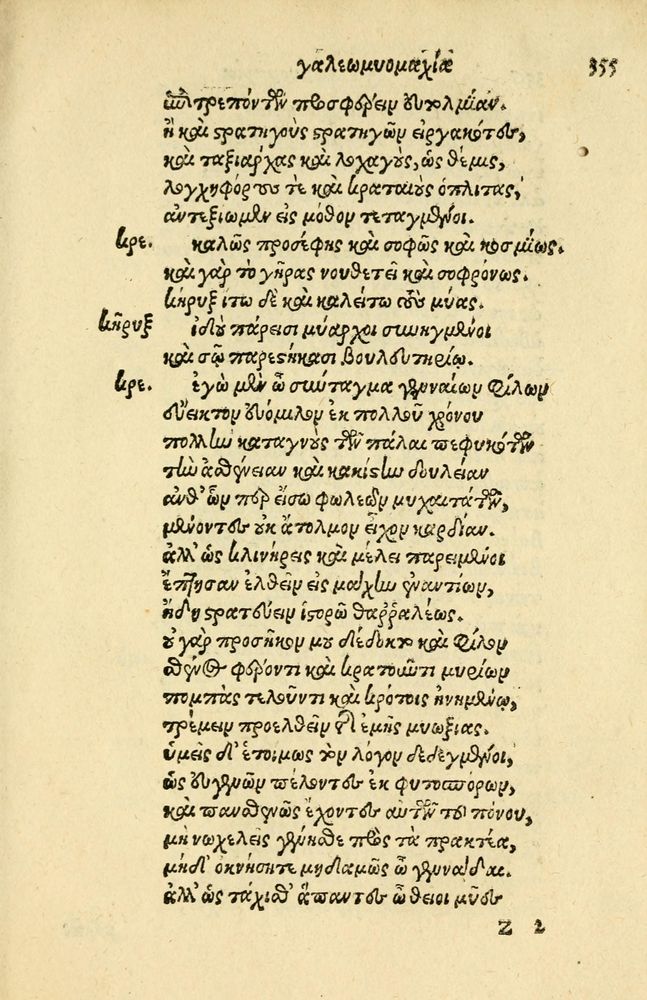 γαλεωμυομαχία 355
ἐπιτρεπόντων προσφέρειν εὐκολμίαν.
ἢ καὶ στρατηγοὺς στρατηγῶν εἰργακότες,
καὶ ταξιάρχας καὶ λοχαγοὺς, ὡς θέμις,
λογχηφόρους τε καὶ κραταιοὺς ὁπλίτας,
ἀντεξίωμεν εἰς μόθον τεταγμένοι.
κρε. καλῶς προσέφης καὶ σοφῶς καὶ κοσμίως.
καὶ γὰρ τὸ γῆρας νουθετεῖ καὶ σοφρόνως.
κήρυξ ἴτω δὲ καὶ καλείτω τοὺς μύας.
κῆρυξ ἰδοὺ πάρεισι μύαρχοι συνηγμένοι
καὶ σῷ παρεστήκασι βουλευτηρίῳ.
κρε. ἐγὼ μὲν ὦ σύνταγμα γενναίων φίλων
εὔεικτον εὐόμιλον ἐκ πολλοῦ χρόνου
πολλὴν καταγνοὺς τῶν πάλαι πεφυκότων
τὴν ἀσθένειαν καὶ κακίστην δουλείαν
ἀνθ' ὧν περ εἴσω φωλεῶν μυχαιτάτων,
μένοντες οὐκ ἄτολμον εἶχον καρδίαν.
ἀλλ' ὡς κλινήρεις καὶ μέλει παρειμένοι
ἔπτησαν ἐλθεῖν εἰς μάχην ἐναντίων,
ἤδη στρατεύειν ἱστορῶ θαῤῥαλέως.
οὐ γὰρ προσῆκον μοι δέδοκται καὶ φίλον
σθένος φέροντι καὶ κρατοῦντι μυρίων
πομπὰς τελοῦντι καὶ κρότοις ᾐνημένῳ,
τρέμειν προελθεῖν τῆς ἐμῆς μυωξίας.
ὑμεῖς δ' ἑτοίμως τὸν λόγον δεδεγμένοι,
ὡς εὐγενῶν πέλοντες ἐκ φυτοσπόρων,
καὶ πανσθενῶς ἔχοντες αὐτῶν τοῦ πόνου,
μὴ νωχελεῖς γένησθε πρὸς τὰ πρακτέα,
μήδ' ὀκνήσητε μηδαμῶς ὦ γεννάδαι.
ἀλλ' ὡς τάχισθ' ἅπαντες ὦ θεῖοι μῦες
Z 2